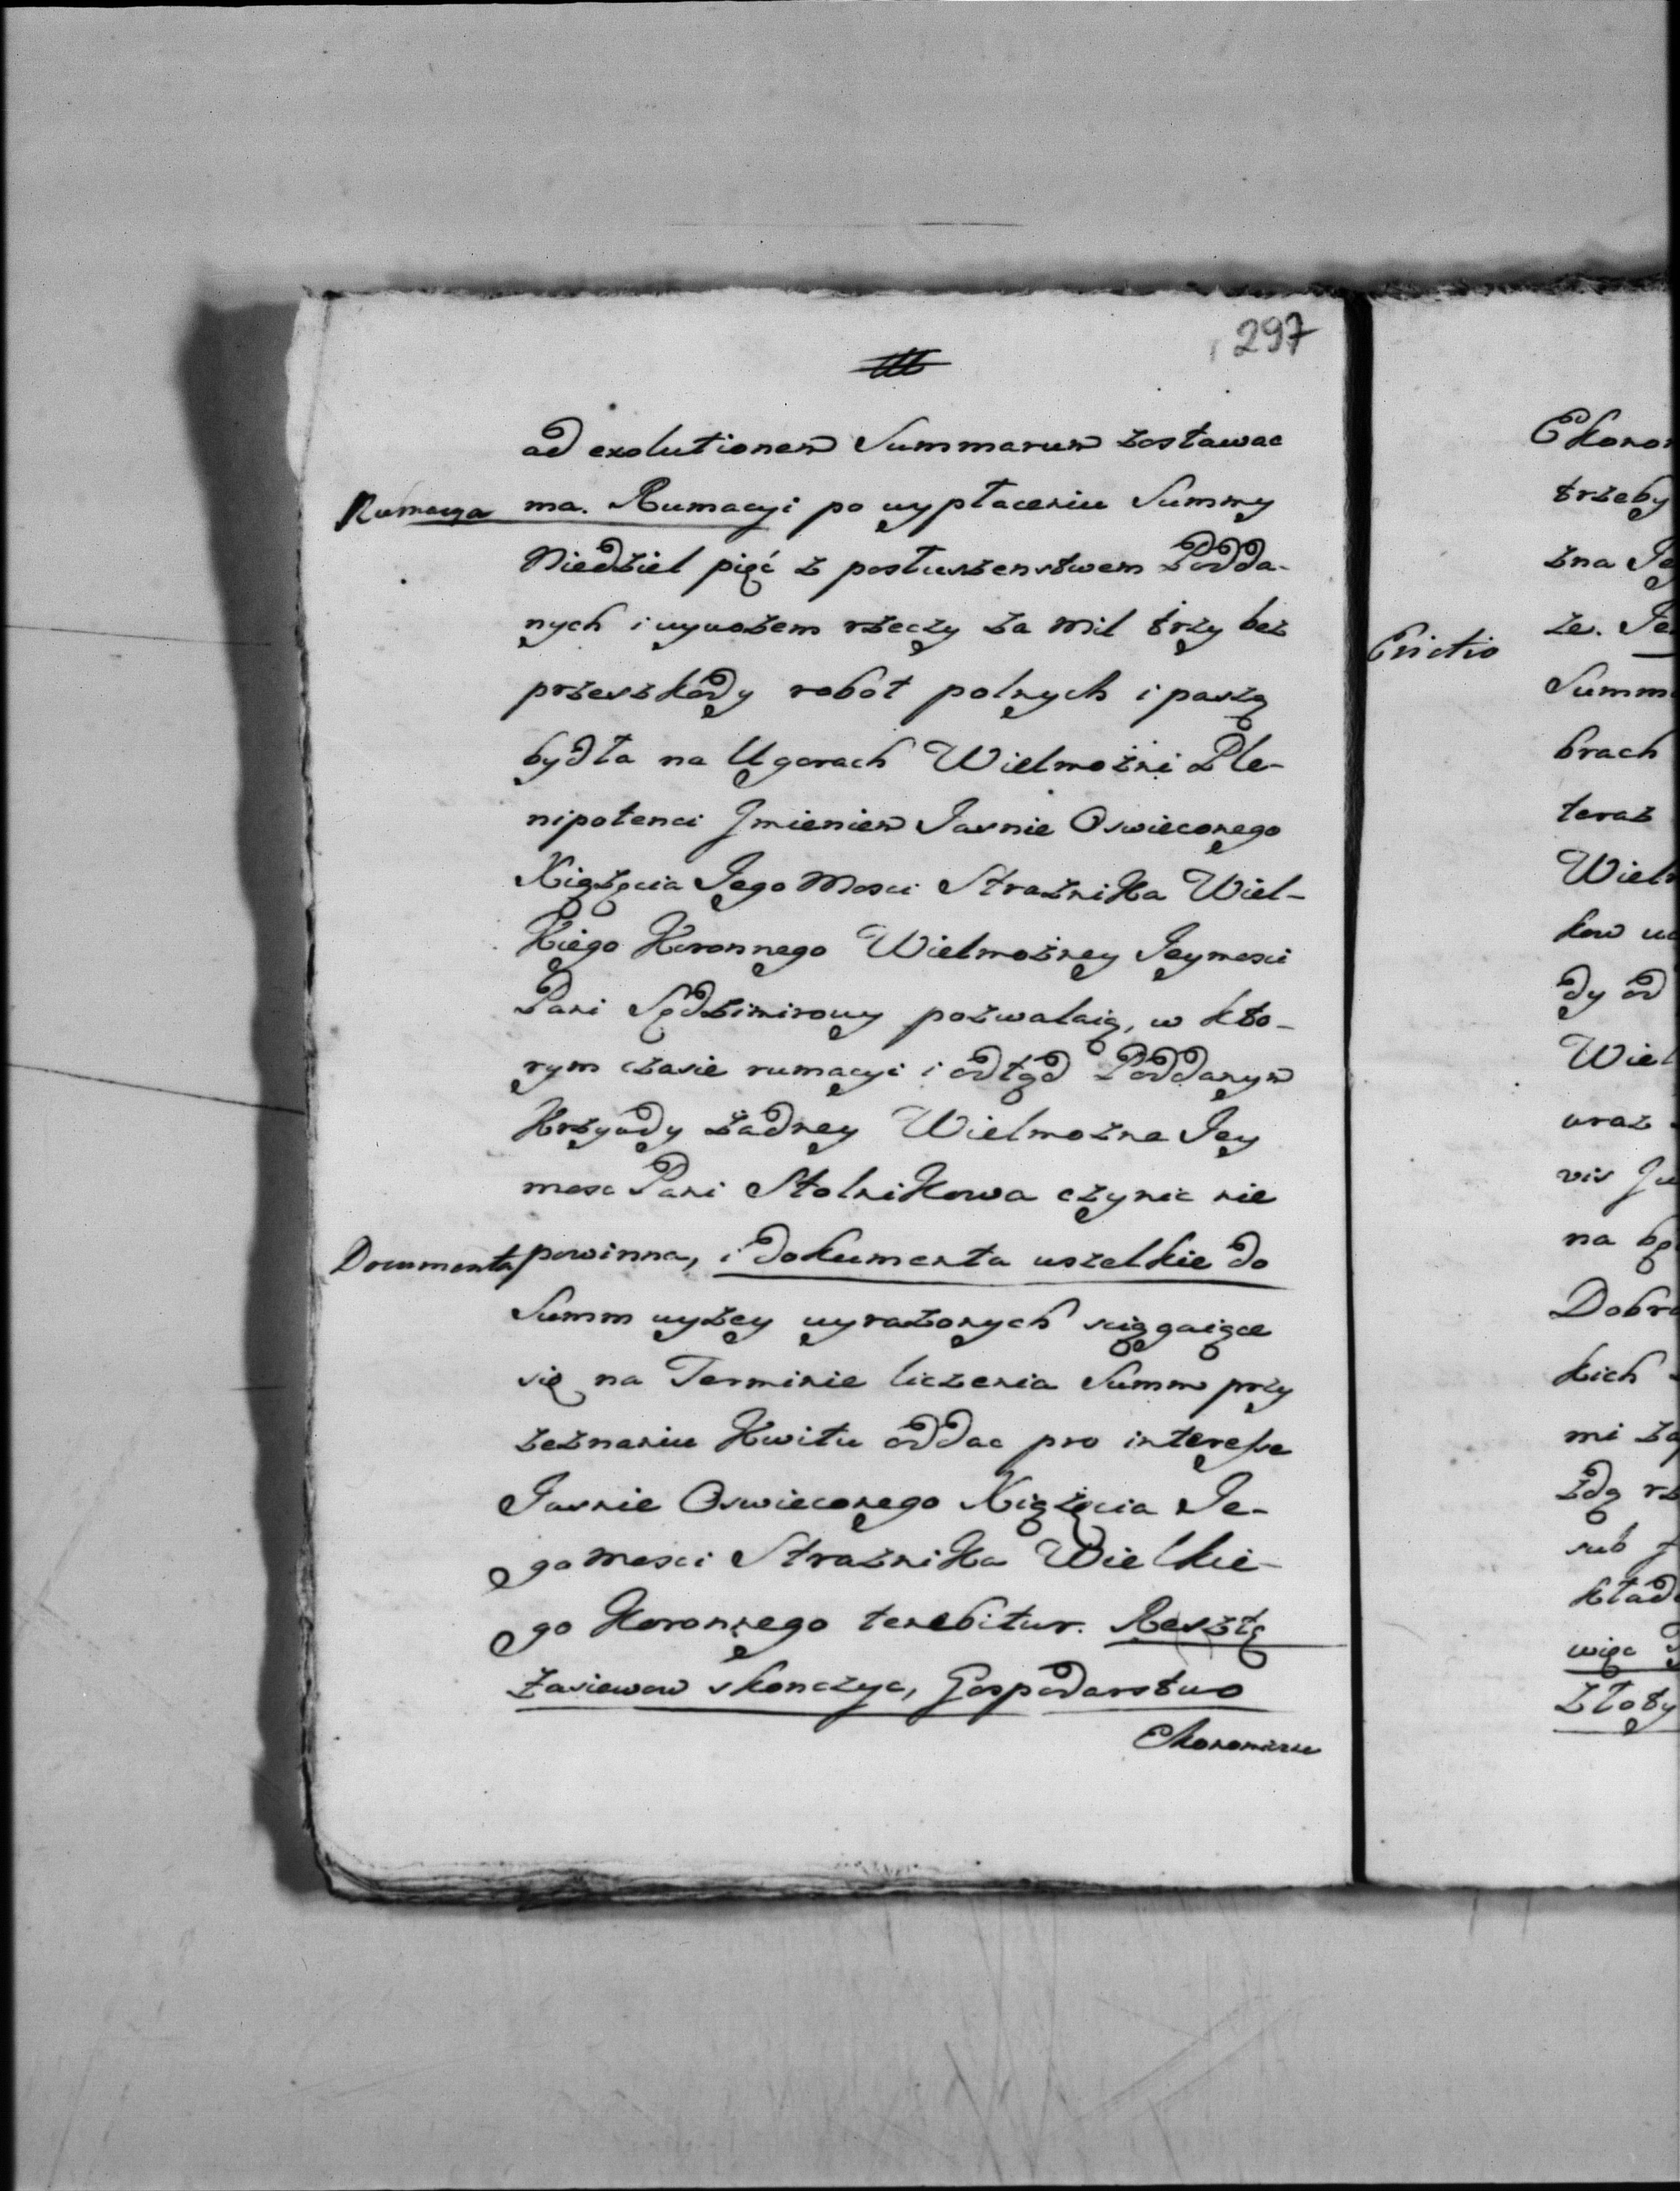 297
ad exolutionem Summarum zostawac
Rumacya ma. Rumacyi po wypłaceniu Summy
Niedziel pięć z posłuszenstwem Podda-
nych i wywozem rzeczy za mil trzy bez
przeszkody robot polnych i paszą
bydła na Ugorach Wielmożni Ple-
nipotenci Jmieniem Jasnie Oswieconego
Xiążęcia Jego Mosci Strażnika Wiel-
kiego Koronnego Wielmożney Jeymosci
Pani Sędzimirowy pozwalaią, w kto-
rym czasie rumacyi i odtąd Poddanym
Krzywdy żadney Wielmożna Jey
mosc Pani Stolnikowa czynic nie
Documenta powinna, i dokumenta wszelkie do
Summ wyżey wyrażonych sciągaiące
się na Terminie liczenia Summ przy
zeznaniu Kwitu oddac pro interesse
Jasnie Oswieconego Xiążęcia Je-
go Mosci Strażnika Wielkie-
go Koronnego tenebitur. Resztę
Zasiewow skonczyc, Gospodarstwo
Ekonomiczne
trzeby
żna Je
że. Je
Evictio
Summ
brach
teraz
Wiel
kow
dy od
Wiel
uraz
vis Ju
na bę
Dobr
kich
mi
żdą
sub
kład
więc
Złoty